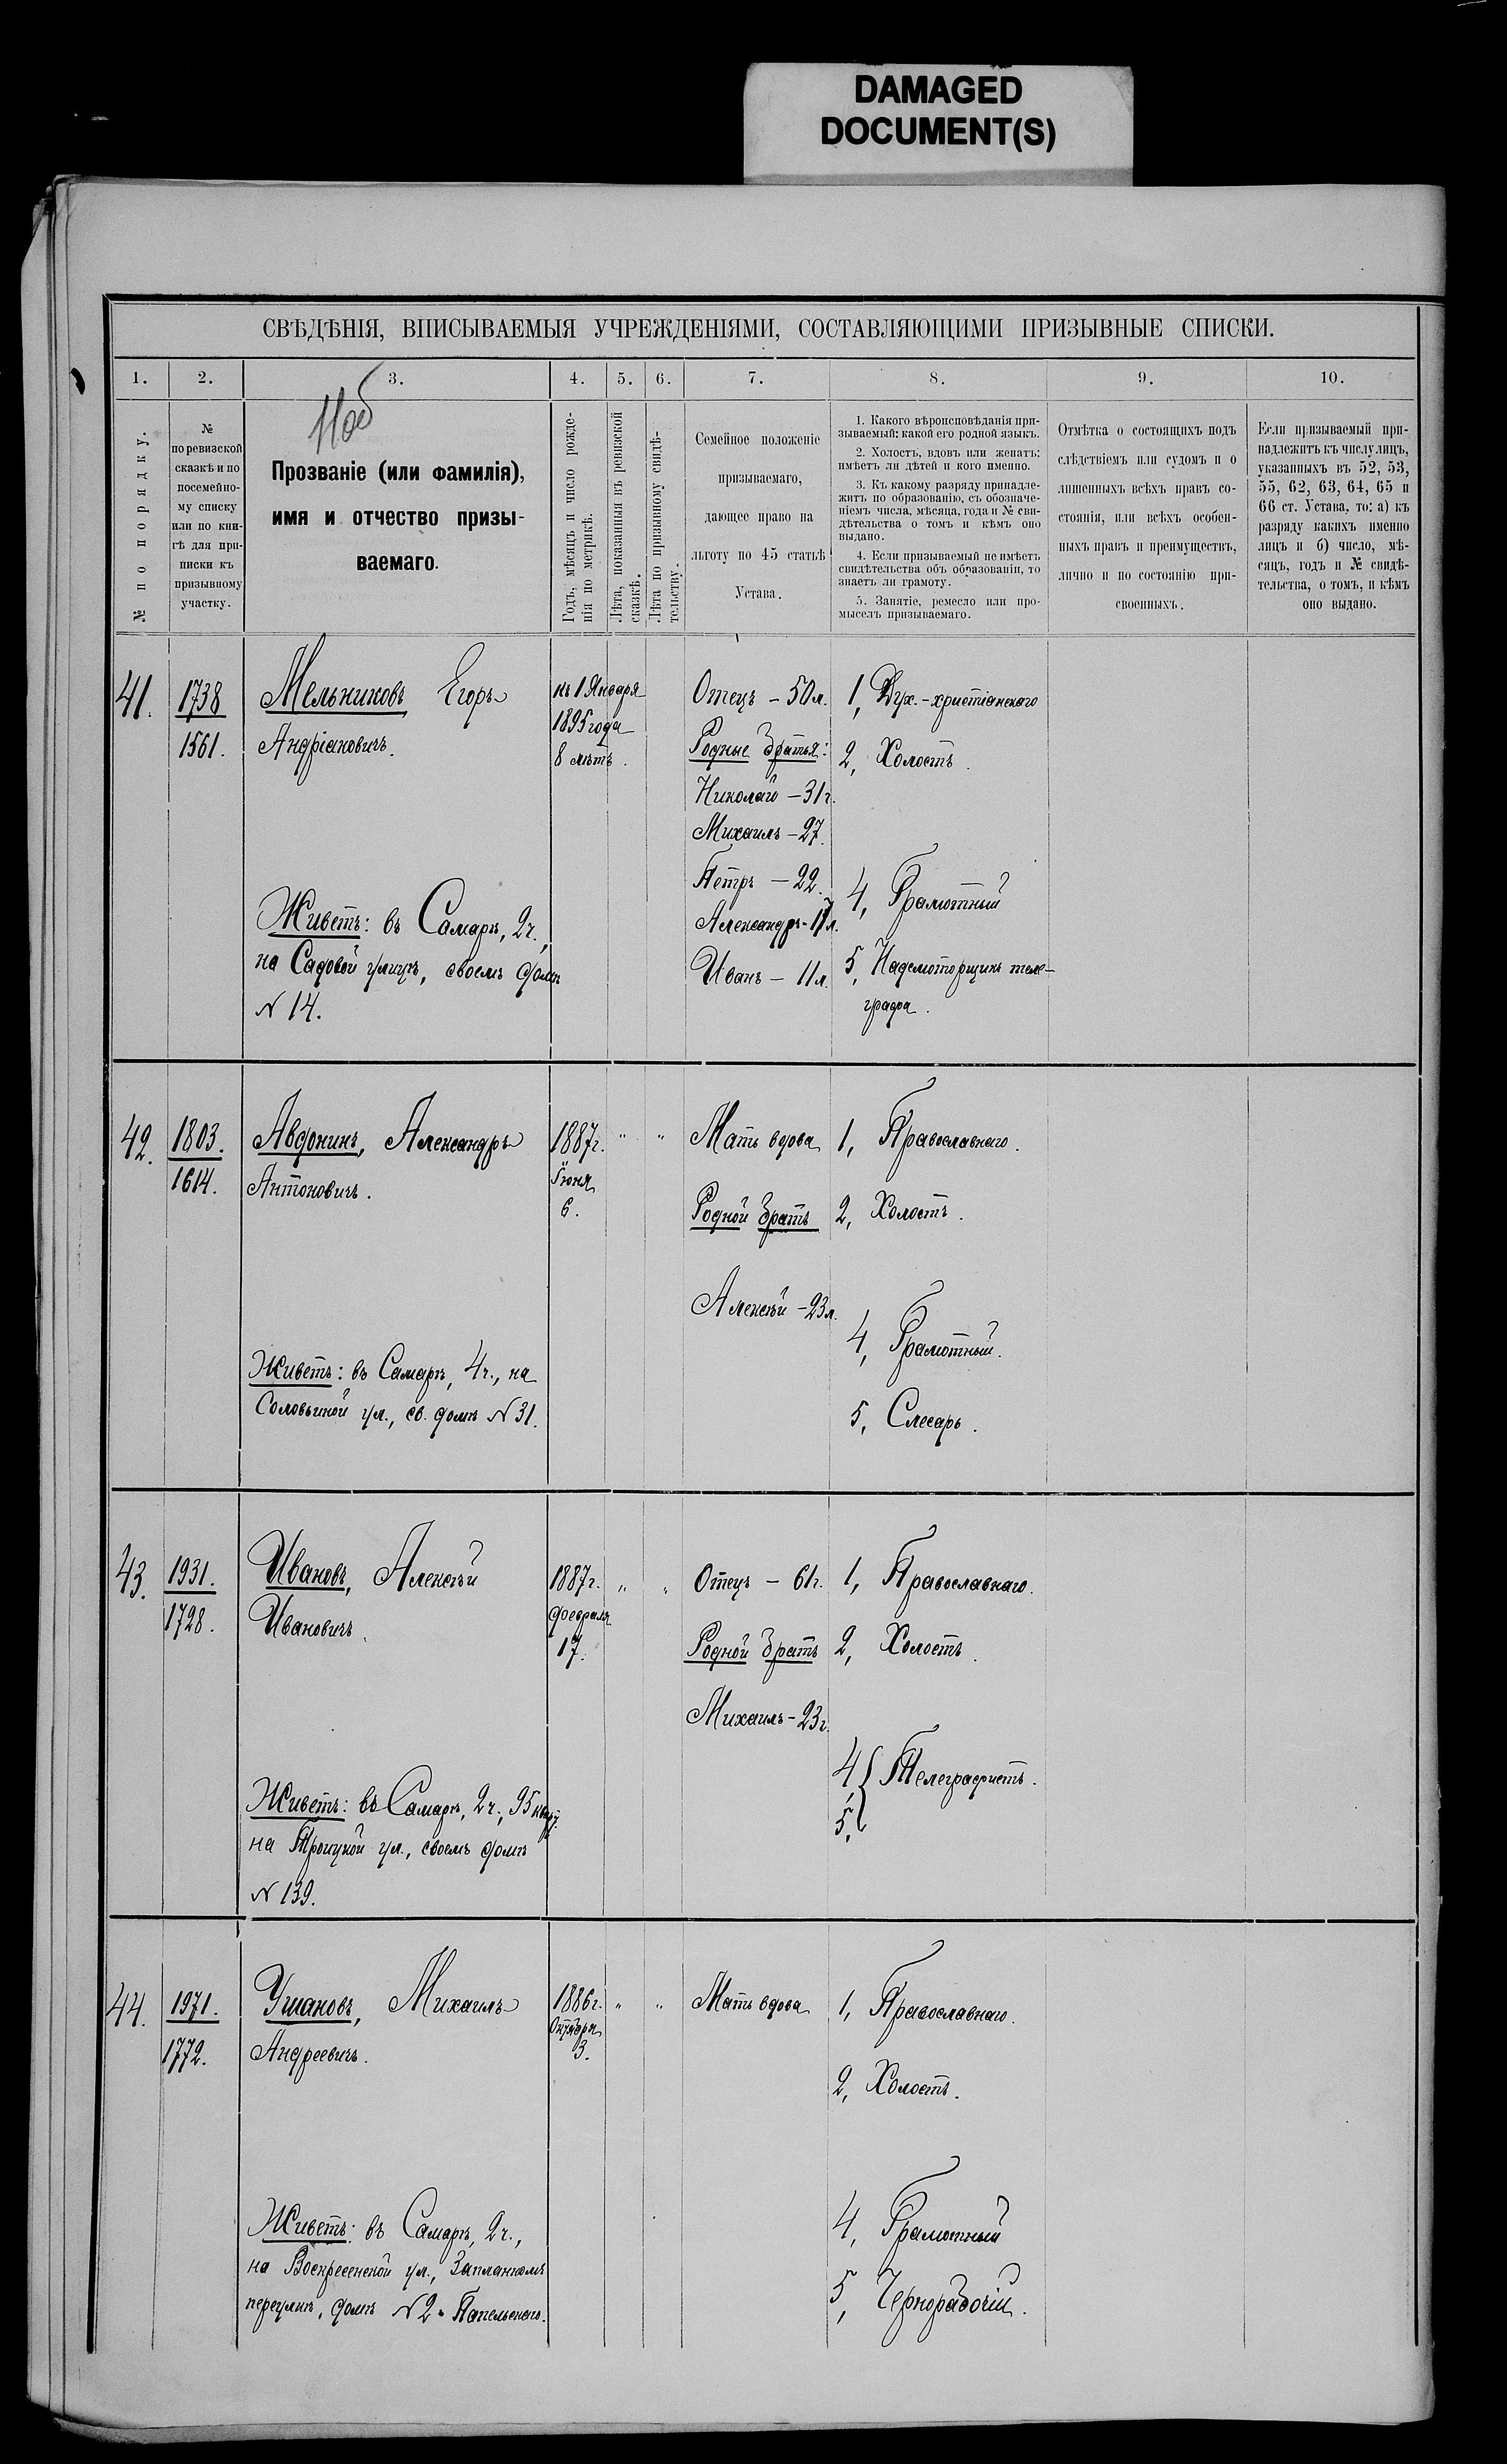 DAMAGED
DOCUMENT(S)
СВѢДѢНІЯ, ВПИСЫВАЕМЫЯ УЧРЕЖДЕНІЯМИ, СОСТАВЛЯЮЩИМИ ПРИЗЫВНЫЕ СПИСКИ.
1.
2.
3.
4.
5.
6.
7.
8.
9.
10.
№ по порядку.
№
по ревизской
сказкѣ и по
посемейно-
му списку
или по кни-
гѣ для при-
писки къ
призывному
участку.
Прозваніе (или фамилія),
имя и отчество призы-
ваемаго.
Годъ, мѣсяцъ и число рожде-
нія по метрикѣ.
Лѣта, показанныя въ ревизской
сказкѣ.
Лѣта по призывному свидѣ-
тельству.
Семейное положеніе
призываемаго,
дающее право на
льготу по 45 статьѣ
Устава.
1. Какого вѣроисповѣданія при-
зываемый; какой его родной языкъ.
2. Холостъ, вдовъ или женатъ;
имѣетъ ли дѣтей и кого именно.
3. Къ какому разряду принадле-
житъ по образованію, съ обозначе-
ніемъ числа, мѣсяца, года и № сви-
дѣтельства о томъ и кѣмъ оно
выдано.
4. Если призываемый не имѣетъ
свидѣтельства объ образованіи, то
знаетъ ли грамоту.
5. Занятіе, ремесло или про-
мыселъ призываемаго.
Отмѣтка о состоящихъ подъ
слѣдствіемъ или судомъ и о
лишенныхъ всѣхъ правъ со-
стоянія, или всѣхъ особен-
ныхъ правъ и преимуществъ,
лично и по состоянію при-
своенныхъ.
Если призываемый при-
надлежитъ къ числу лицъ,
указанныхъ въ 52, 53,
55, 62, 63, 64, 65 и
66 ст. Устава, то: а) къ
разряду какихъ именно
лицъ и б) число, мѣ-
сяцъ, годъ и № свидѣ-
тельства, о томъ, и кѣмъ
оно выдано.
41.
1738
1561.
Мельниковъ Егоръ
Андріановичъ.
Живетъ: въ Самарѣ, 2ч.,
на Садовой улицѣ, своемъ домѣ
N 14.
къ 1 Января
1895 года
8 лѣтъ.
Отецъ – 50 л.
Родные братья:
Николай – 31 г.
Михаилъ – 27.
Петръ – 22.
Александръ – 17 л.
Иванъ – 11 л.
1, Дух.-христіанскаго
2, Холостъ.
4, Грамотный
5, Надсмотрщикъ теле-
графа.
42.
1803.
1614.
Авдонинъ, Александръ
Антоновичъ.
Живетъ: въ Самарѣ, 4ч., на
Соловьиной ул., св. домѣ N 31.
1887 г.
Іюня
6.
" "
Мать вдова
Родной братъ
Алексѣй – 23 л.
1, Православнаго.
2, Холостъ.
4, Грамотный.
5, Слесарь.
43.
1931.
1728.
Ивановъ, Алексѣй
Ивановичъ.
Живетъ: въ Самарѣ, 2ч., 95 кварт.
на Троицкой ул., своемъ домѣ
N 139.
1887 г.
февраля
17.
" "
Отецъ – 61 г.
Родной братъ
Михаилъ – 23 г.
1, Православнаго.
2, Холостъ.
4, } Телеграфистъ.
5,
44.
1971.
1772.
Ушановъ, Михаилъ
Андреевичъ.
Живетъ: въ Самарѣ, 2ч.,
на Воскресенской ул.,
переулкѣ, домѣ N 2
1886 г.
Октября
3.
" "
Мать вдова
1, Православнаго.
2, Холостъ.
4, Грамотный
5, Чернорабочій.